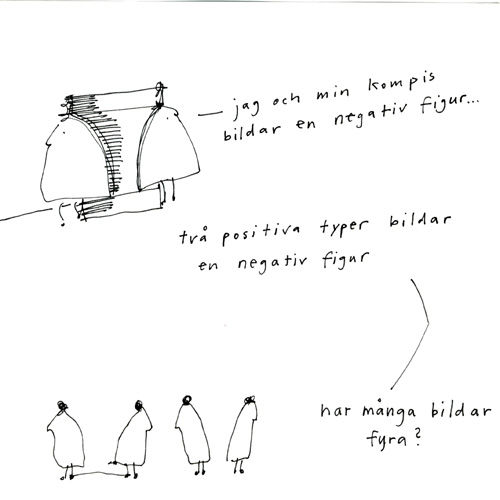 — jag och min kompis
bildar en negativ figur...
två positiva typer bildar
en negativ figur
hur många bildar
fyra?